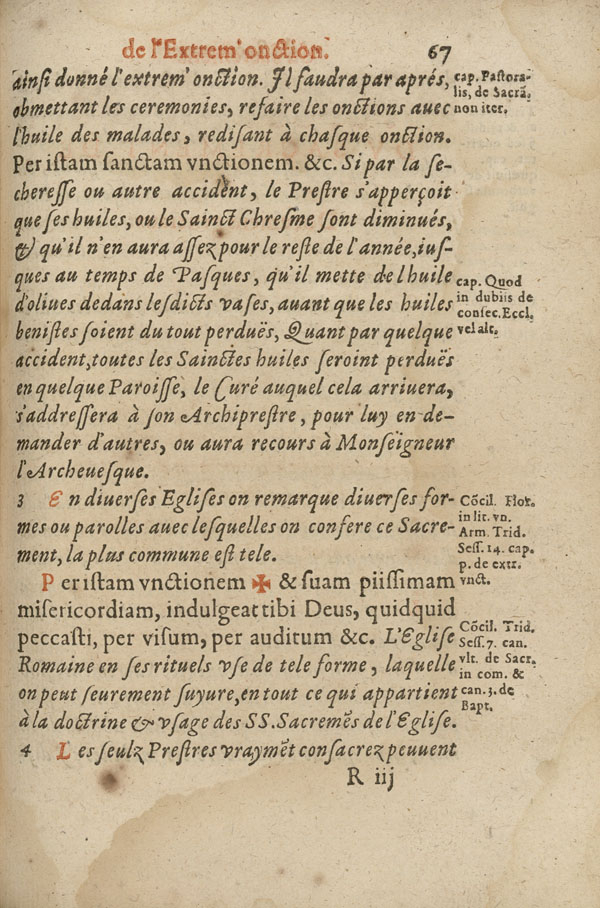 de l'Extrem' onction. 67
ainsi donné l'extrem' onction. Il faudra par aprés,
obmettant les ceremonies, refaire les onctions auec
l'huile des malades, redisant à chasque onction.
Per istam sanctam vnctionem. &c. Si par la se-
cheresse ou autre accident, le Prestre s'apperçoit
que ses huiles, ou le Sainct Chresme sont diminués,
& qu'il n'en aura assez pour le reste de l'année, ius-
ques au temps de Pasques, qu'il mette de l'huile
d'oliues dedans lesdicts vases, auant que les huiles
benistes soient du tout perduës, Quant par quelque
accident, toutes les Sainctes huiles seroint perduës
en quelque Paroisse, le Curé auquel cela arriuera,
s'addressera à son Archiprestre, pour luy en de-
mander d'autres, ou aura recours à Monseigneur
l'Archeuesque.
3 En diuerses Eglises on remarque diuerses for-
mes ou parolles auec lesquelles on confere ce Sacre-
ment, la plus commune est tele.
Per istam vnctionem ✠ & suam piissimam
misericordiam, indulgeat tibi Deus, quidquid
peccasti, per visum, per auditum &c. L'Eglise
Romaine en ses rituels vse de tele forme, laquelle
on peut seurement suyure, en tout ce qui appartient
à la doctrine & vsage des SS. Sacremẽs de l'Eglise.
4 Les seulz Prestres vraymẽt consacrez peuuent
R iij
cap. Pastora-
lis, de Sacrã.
non iter.
cap. Quod
in dubiis de
consec. Eccl.
vel alt.
Cõcil. Flor.
in lit. vn.
Arm. Trid.
Sess. 14. cap.
p. de extr.
vnct.
Cõcil. Trid.
Sess. 7. can.
vlt. de Sacr.
in com. &
can. 3. de
Bapt.